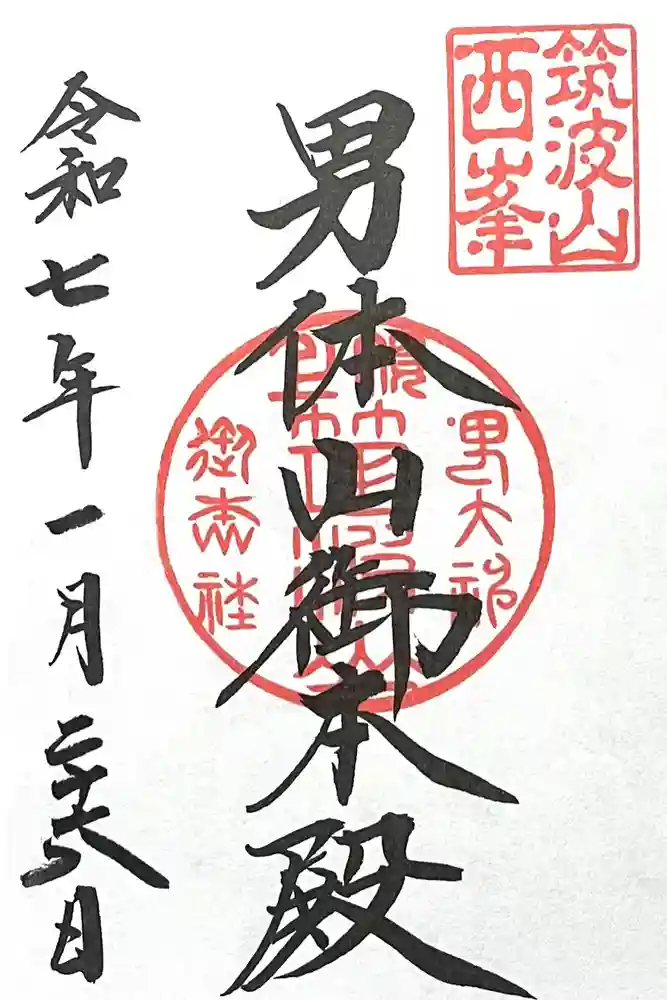 筑波山
西峯
男体山御本殿
男大神
御本社
令和七年一月二十六日